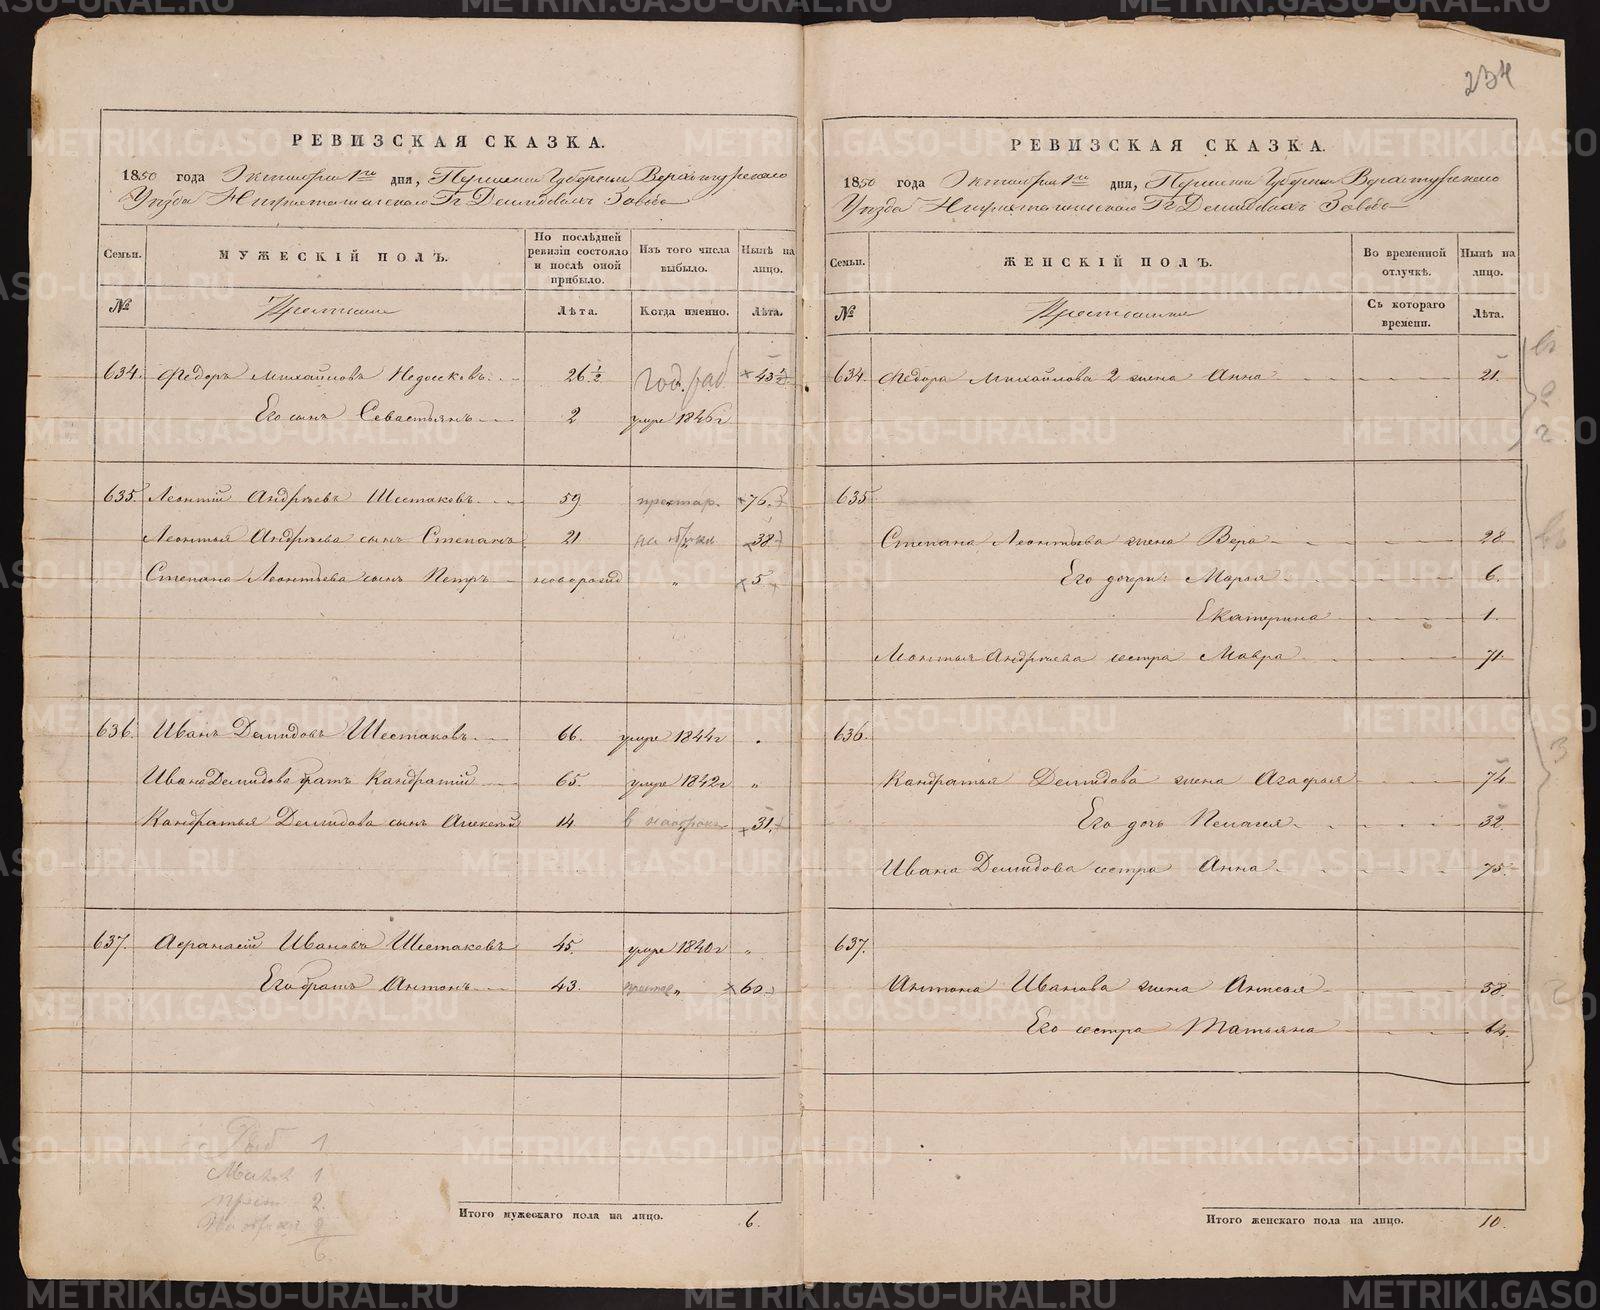 234
РЕВИЗСКАЯ СКАЗКА.
1850 года Октября 1го дня, Пермской Губернии Верхотурского
Уѣзда Нижнетагильского Гг. Демидовыхъ Завода
Семьи. МУЖЕСКІЙ ПОЛЪ. По послѣдней ревизіи состояло и послѣ оной прибыло. Изъ того числа выбыло. Нынѣ на лицо.
№ Крестьяне Лѣта. Когда именно. Лѣта.
634. Федоръ Михайловъ Недосековъ 26 1/2 год. раб 43 1/2
Его сынъ Севастьянъ 2 умре 1846 г
635. Леонтій Андреевъ Шестаковъ 59 престар. 76.
Леонтья Андреева сынъ Степанъ 21 38
Степана Леонтьева сынъ Петръ новорожд „ 5
636. Иванъ Демидовъ Шестаковъ 66. умре 1844 г „
Ивана Демидова братъ Кандратій 65. умре 1842 г „
Кандратья Демидова сынъ Алексѣй 14 31.
637. Афанасій Ивановъ Шестаковъ 45. умре 1840 г „
Его братъ Антонъ 43. престар „ 60
Раб 1
1
прест 2.
2
6
Итого мужескаго пола на лицо. 6.
РЕВИЗСКАЯ СКАЗКА.
1850 года Октября 1го дня, Пермской Губернии Верхотурского
Уѣзда Нижнетагильского Гг. Демидовыхъ Завода
Семьи. ЖЕНСКІЙ ПОЛЪ. Во временной отлучкѣ. Нынѣ на лицо.
№ Крестьянки Съ котораго времени. Лѣта.
634. Федора Михайлова 2 жена Анна 21.
635
Степана Леонтьева жена Вера 28
Его дочери: Марья 6.
Екатерина 1.
Леонтья Андреева сестра Мавра 71.
636.
Кандратья Демидова жена Агафья 74
Его дочь Пелагея 32.
Ивана Демидова сестра Анна 75.
637.
Антона Иванова жена Анисья 58.
Его сестра Татьяна 64.
Итого женскаго пола на лицо. 10.
METRIKI.GASO-URAL.RU